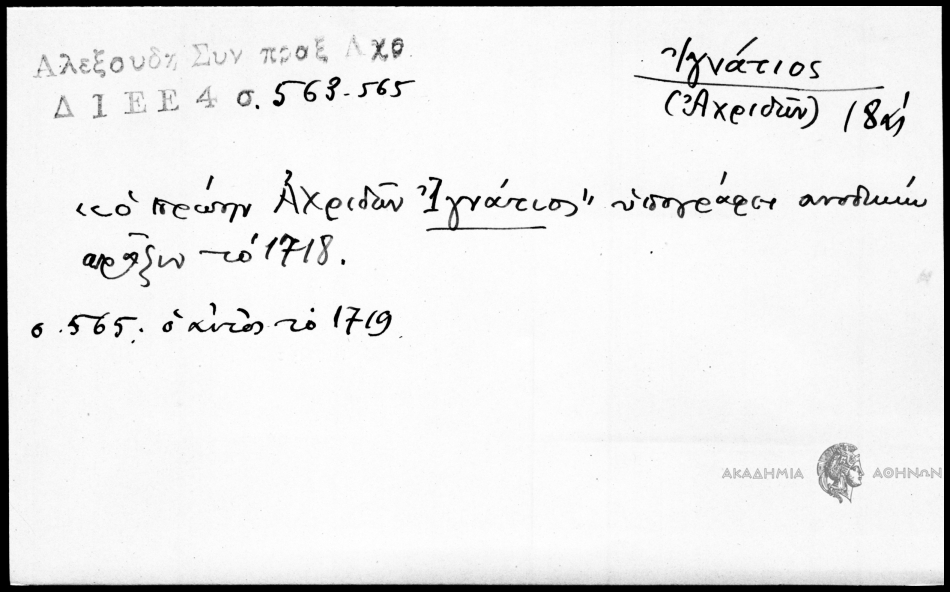 Αλεξουδη Συν πραξ Αχρ.
Δ Ι Ε Ε 4 σ. 563-565
Ἰγνάτιος
(Ἀχριδῶν) 18 αἰ
«ὁ πρώην Ἀχριδῶν Ἰγνάτιος» ὑπογράφει συνοδικὴν
πρᾶξιν τὸ 1718.
σ. 565. ὁ αὐτὸς τὸ 1719.
ΑΚΑΔΗΜΙΑ ΑΘΗΝΩΝ